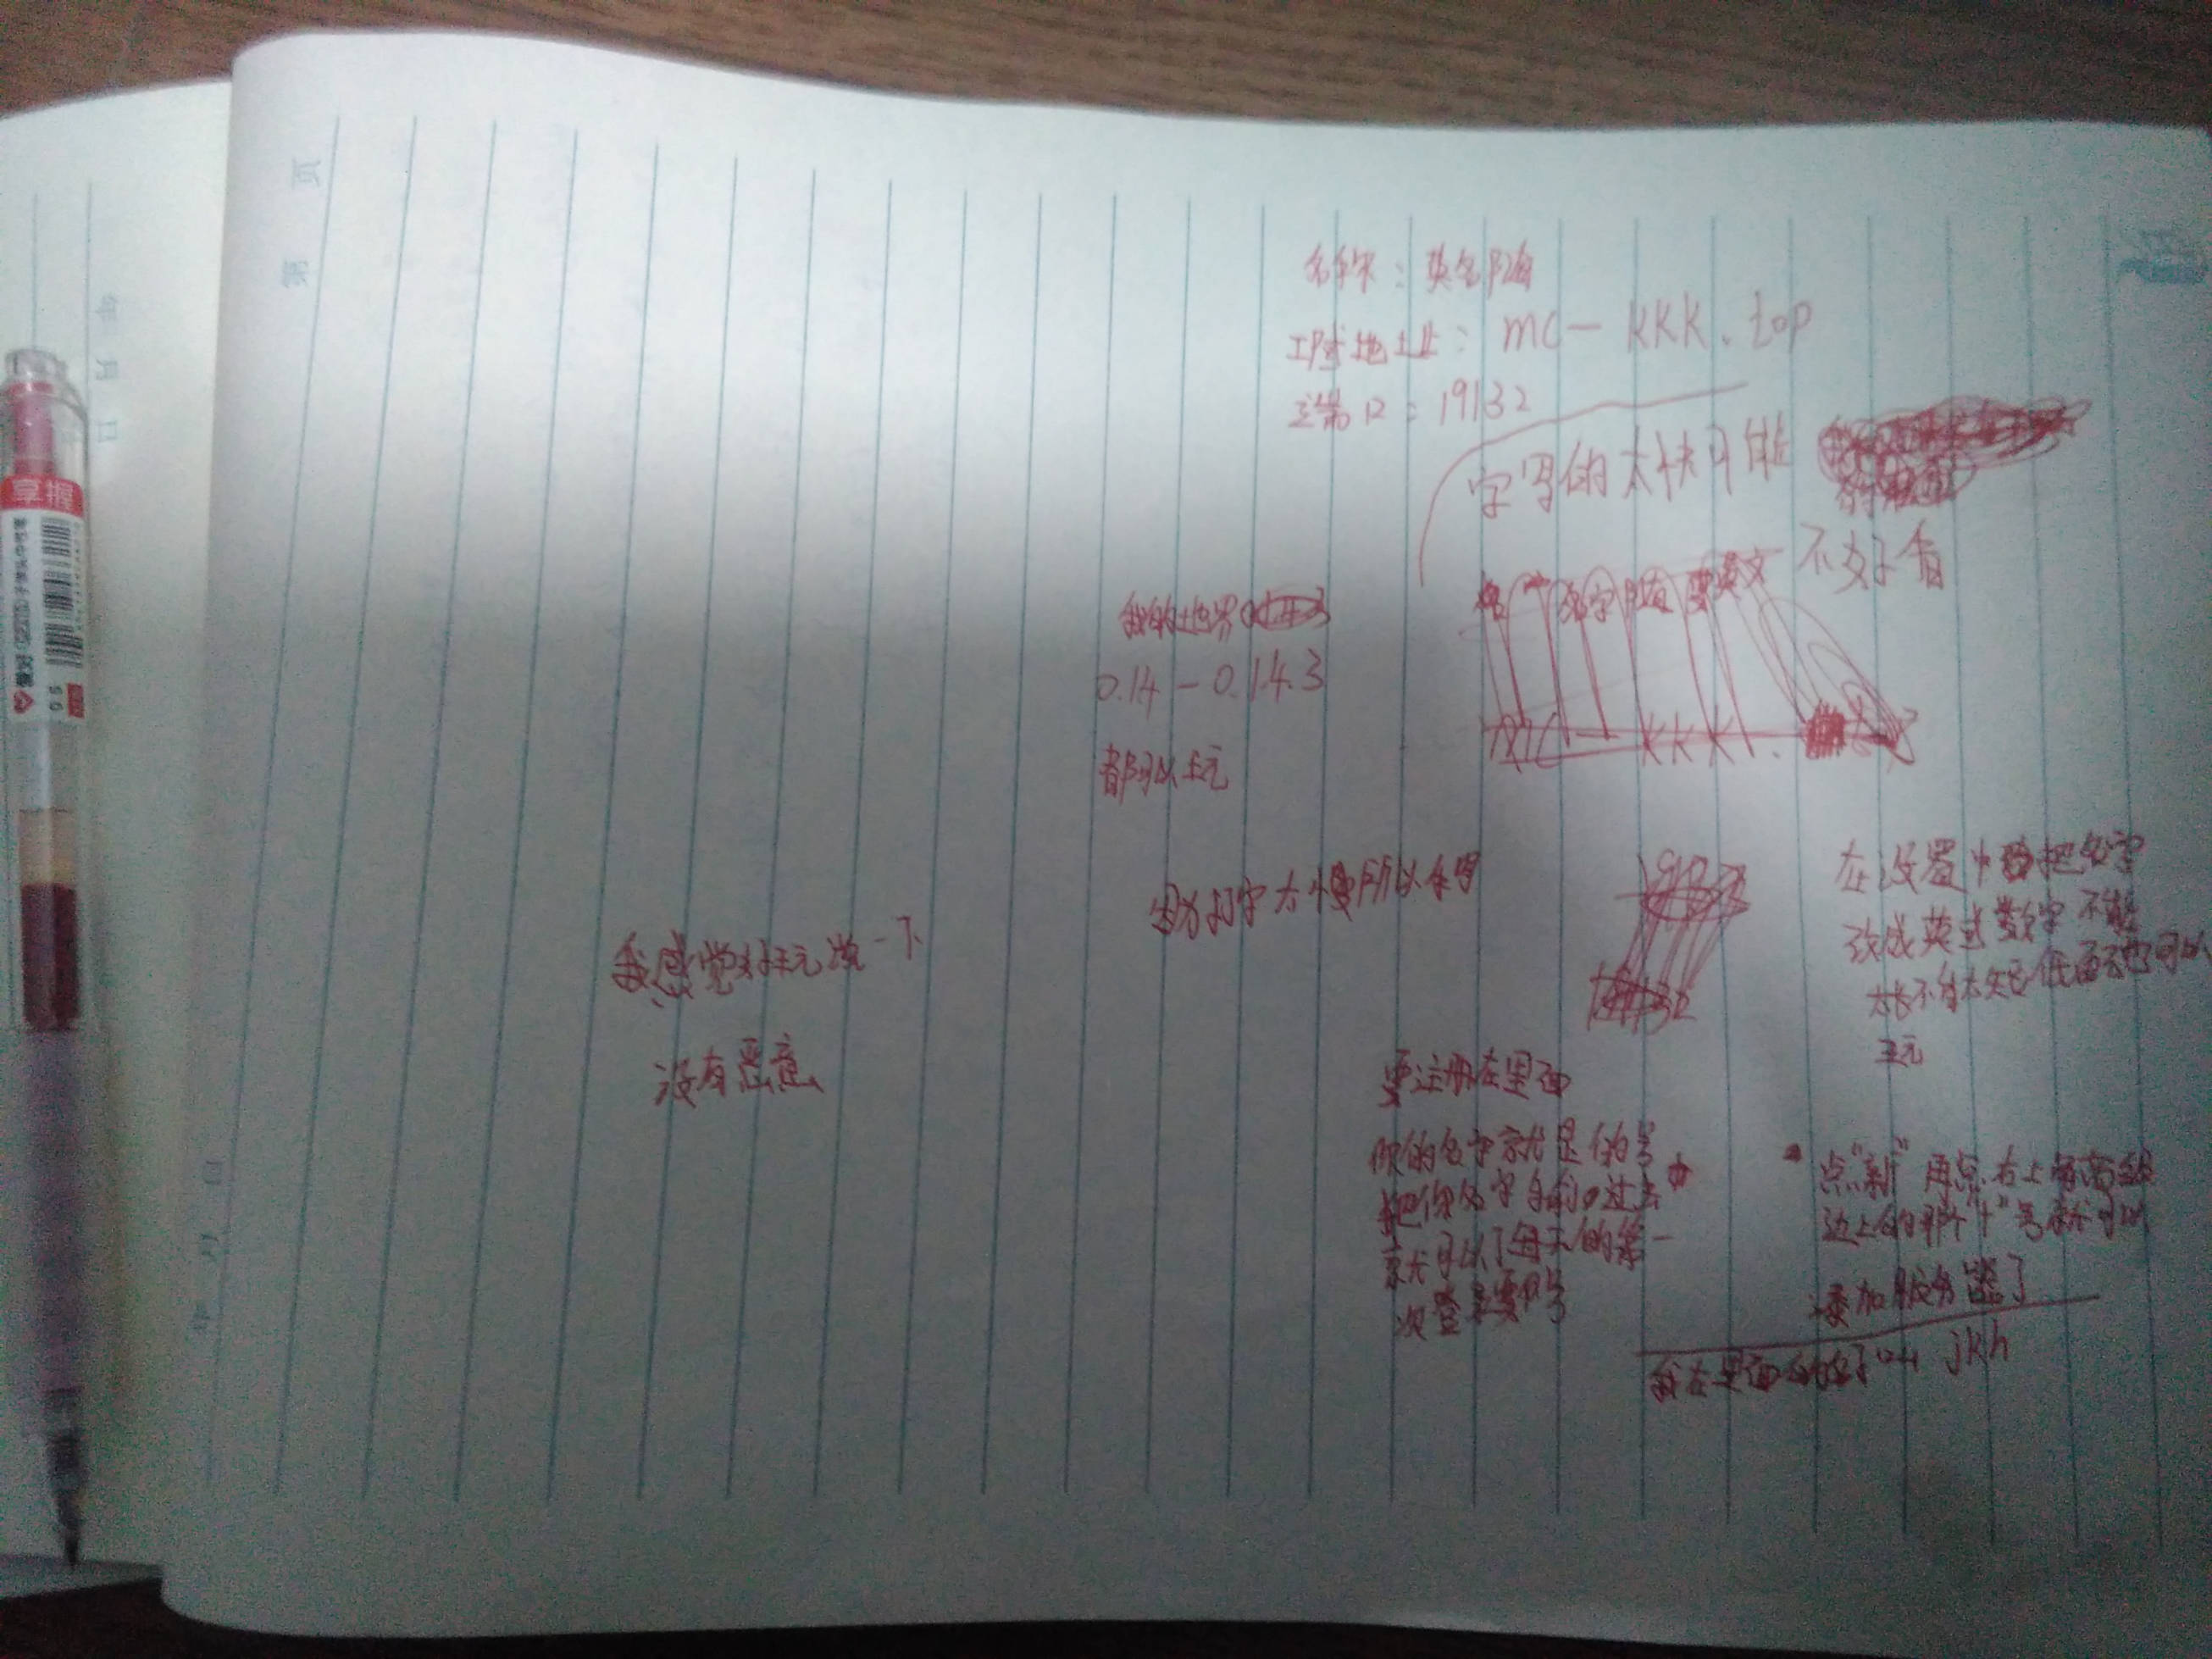 名称：英名随
IP地址：mc-kkk.top
端口：19132
字写的太快可能
不好看
我的世界
0.14-0.14.3
都可以玩
因为打字太慢所以手写
我感觉好玩说一下
没有恶意
在设置中把名字
改成英式数字不能
太长不能太短
玩
要注册在里面
你的名字就是你的号
把你名字
就可以了每天的第一
次登录要
点"新"再点右上角高级
边上的那个"+"号就可以
添加服务器了
我在里面的名字叫jkh
第 页
年 月 日
年 月 日
掌握